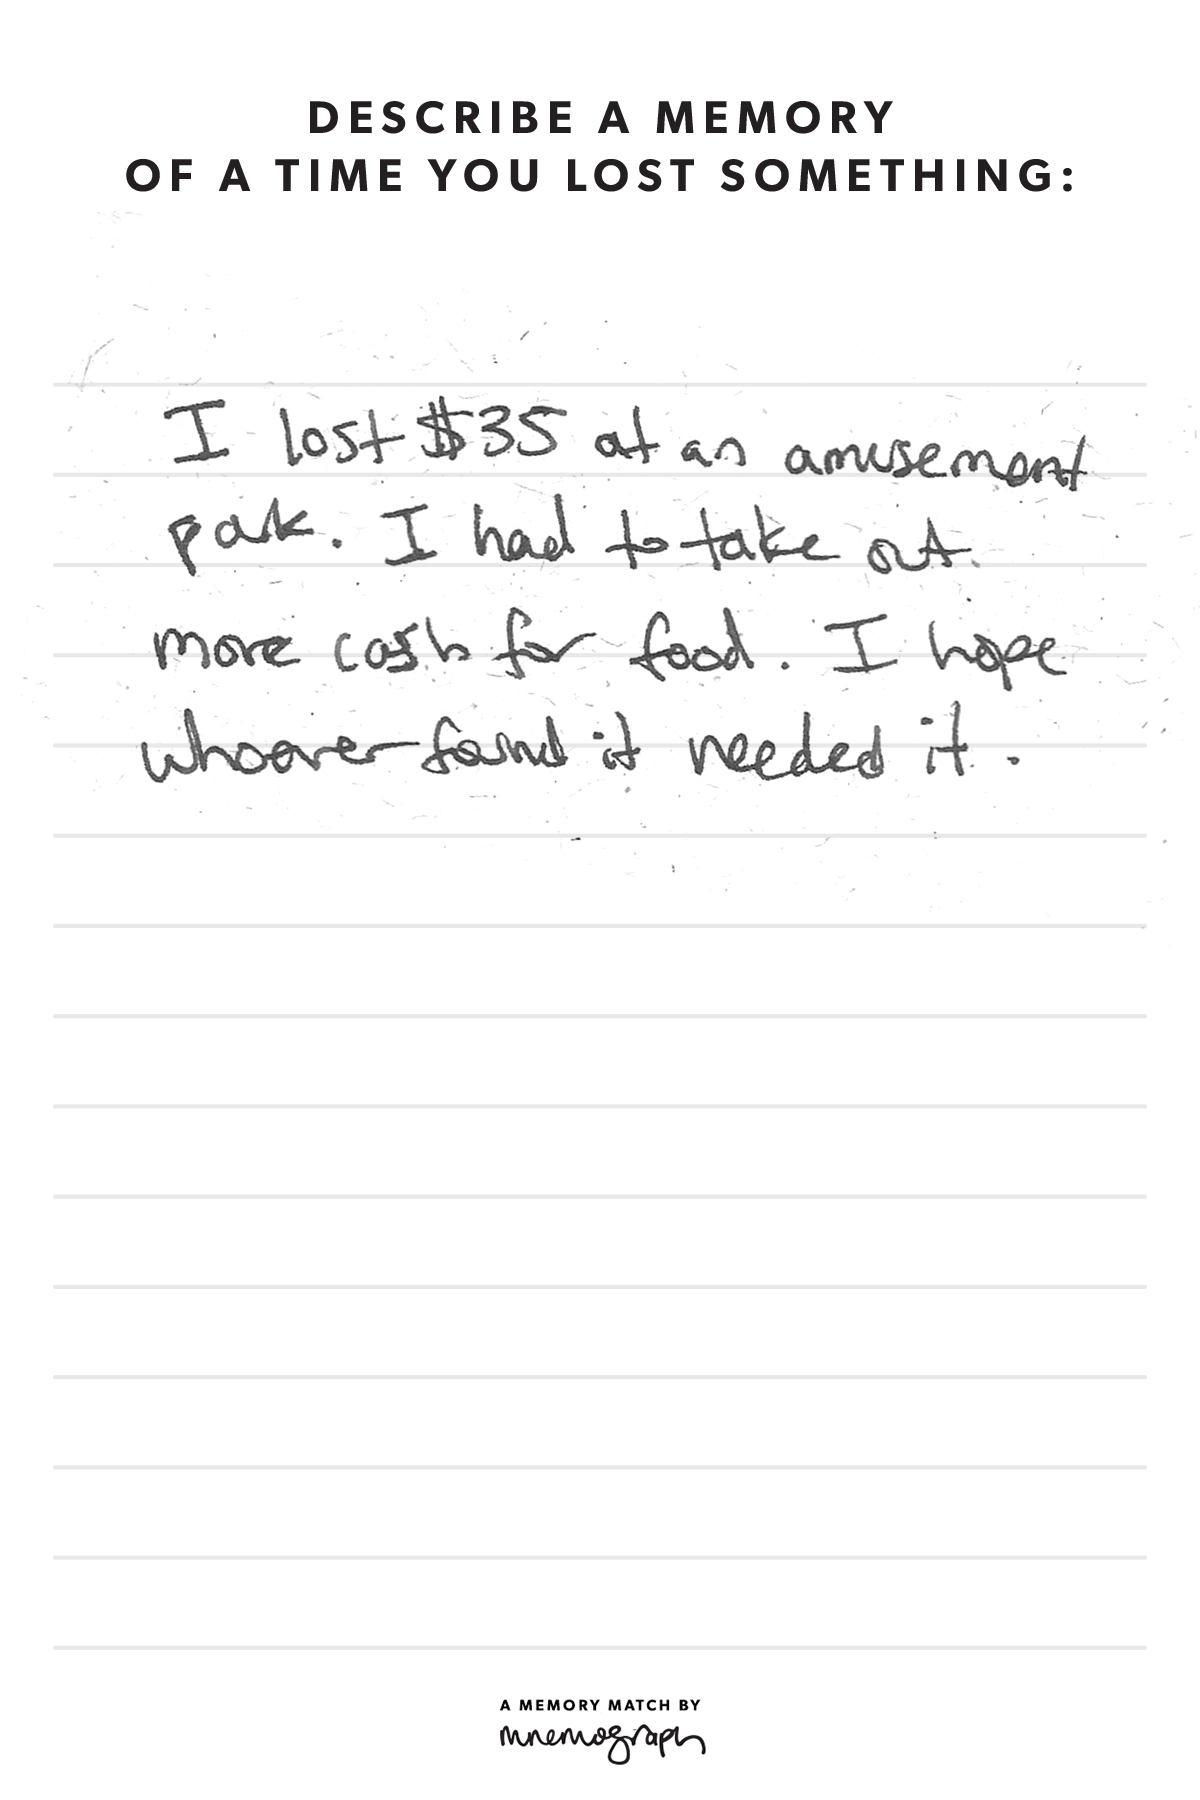 DESCRIBE A MEMORY
OF A TIME YOU LOST SOMETHING:
I lost $35 at an amusement
park. I had to take out
more cash for food. I hope
whoever found it needed it.
A MEMORY MATCH BY
mnemograph